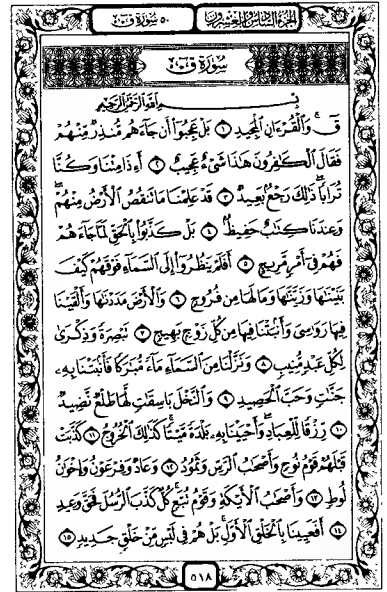 الجزء السادس والعشرون
٥٠ سورة ق
سورة ق
بسم الله الرحمن الرحيم
قٓ وَالْقُرْءَانِ الْمَجِيدِ ١ بَلْ عَجِبُوا أَن جَاءَهُم مُّنذِرٌ مِّنْهُمْ
فَقَالَ الْكَافِرُونَ هَذَا شَيْءٌ عَجِيبٌ ٢ أَءِذَا مِتْنَا وَكُنَّا
تُرَابًا ذَلِكَ رَجْعٌ بَعِيدٌ ٣ قَدْ عَلِمْنَا مَا تَنقُصُ الْأَرْضُ مِنْهُمْ
وَعِندَنَا كِتَابٌ حَفِيظٌ ٤ بَلْ كَذَّبُوا بِالْحَقِّ لَمَّا جَاءَهُمْ
فَهُمْ فِي أَمْرٍ مَّرِيجٍ ٥ أَفَلَمْ يَنظُرُوا إِلَى السَّمَاءِ فَوْقَهُمْ كَيْفَ
بَنَيْنَاهَا وَزَيَّنَّاهَا وَمَا لَهَا مِن فُرُوجٍ ٦ وَالْأَرْضَ مَدَدْنَاهَا وَأَلْقَيْنَا
فِيهَا رَوَاسِيَ وَأَنبَتْنَا فِيهَا مِن كُلِّ زَوْجٍ بَهِيجٍ ٧ تَبْصِرَةً وَذِكْرَى
لِكُلِّ عَبْدٍ مُّنِيبٍ ٨ وَنَزَّلْنَا مِنَ السَّمَاءِ مَاءً مُّبَارَكًا فَأَنبَتْنَا بِهِ
جَنَّاتٍ وَحَبَّ الْحَصِيدِ ٩ وَالنَّخْلَ بَاسِقَاتٍ لَّهَا طَلْعٌ نَّضِيدٌ
١٠ رِّزْقًا لِّلْعِبَادِ وَأَحْيَيْنَا بِهِ بَلْدَةً مَّيْتًا كَذَلِكَ الْخُرُوجُ ١١ كَذَّبَتْ
قَبْلَهُمْ قَوْمُ نُوحٍ وَأَصْحَابُ الرَّسِّ وَثَمُودُ ١٢ وَعَادٌ وَفِرْعَوْنُ وَإِخْوَانُ
لُوطٍ ١٣ وَأَصْحَابُ الْأَيْكَةِ وَقَوْمُ تُبَّعٍ كُلٌّ كَذَّبَ الرُّسُلَ فَحَقَّ وَعِيدِ
١٤ أَفَعَيِينَا بِالْخَلْقِ الْأَوَّلِ بَلْ هُمْ فِي لَبْسٍ مِّنْ خَلْقٍ جَدِيدٍ ١٥
٥١٨